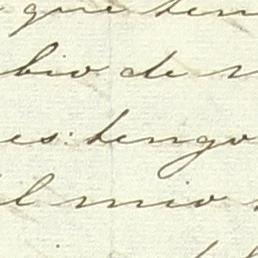 que ten
bio de
es: tengo
el mio